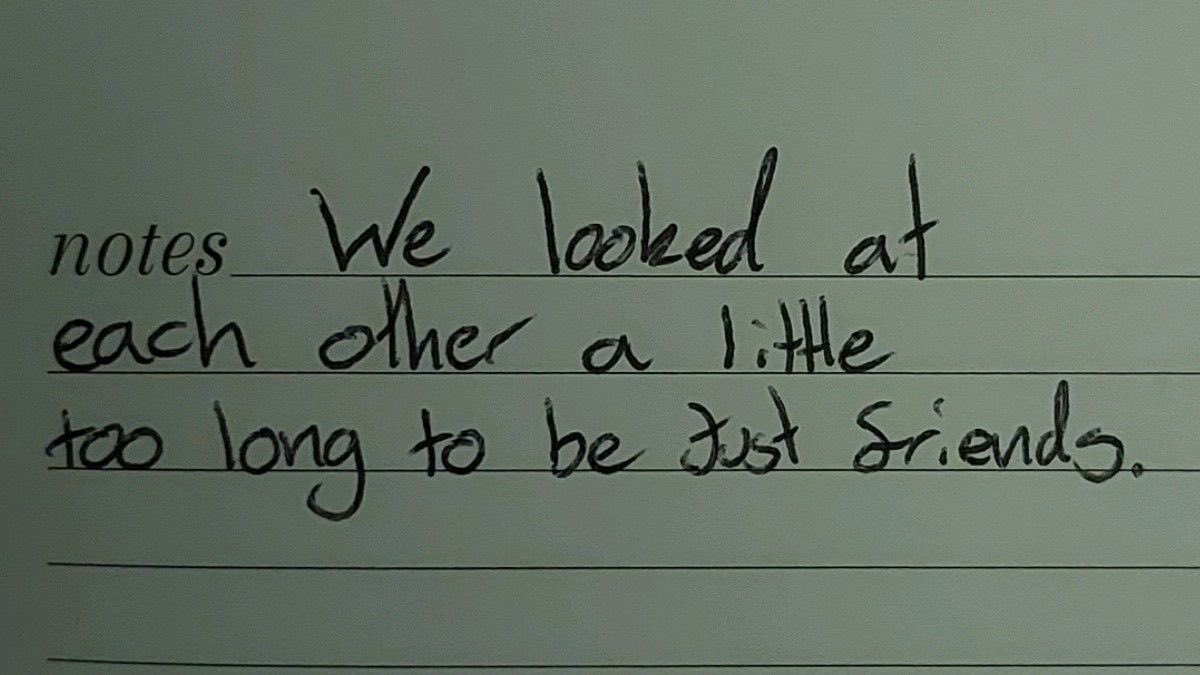 notes We looked at
each other a little
too long to be just friends.